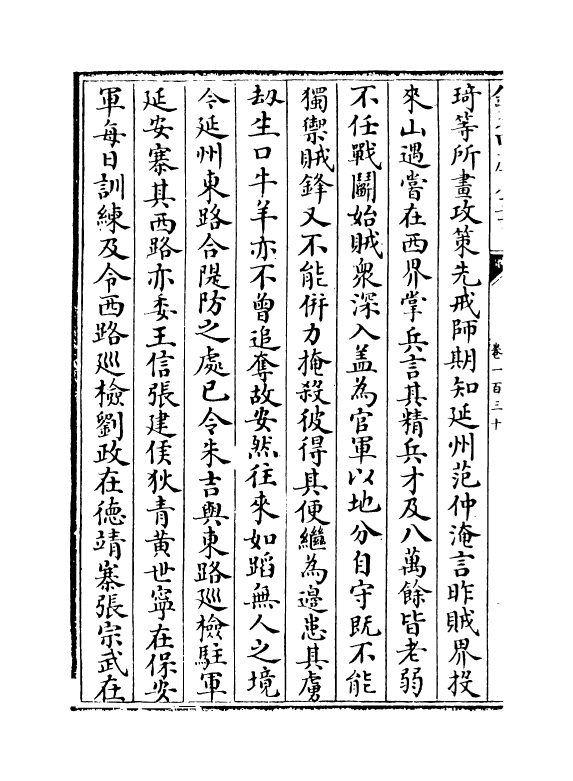 卷一百三十
琦等所畫攻策先戒師期知延州范仲淹言昨賊界投
來山遇嘗在西界掌兵言其精兵才及八萬餘皆老弱
不任戰鬬始賊衆深入盖為官軍以地分自守既不能
獨禦賊鋒又不能併力掩殺彼得其便繼為邊患其虜
刧生口牛羊亦不曾追奪故安然往來如蹈無人之境
今延州東路合隄防之處已令朱吉與東路廵檢駐軍
延安寨其西路亦委王信張建侯狄青黄世寧在保安
軍每日訓練及令西路廵檢劉政在德靖寨張宗武在